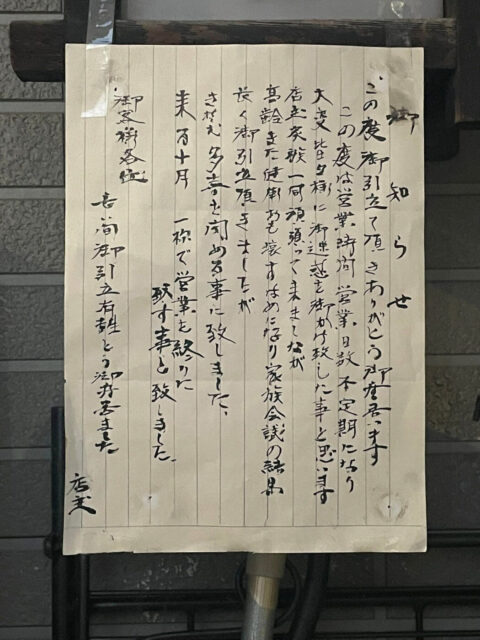 御知らせ
この度御引立て頂きありがとう御座居います
この度は営業時間 営業日数 不定期になり
大変皆々様に御迷惑を御かけ致した事と思います
店主家族一同頑張って来ましたが
高齢また健康おも壊すはめになり家族会議の結果
長く御引立頂きましたが
多喜を閉める事に致しました、
来る十月 一杯で営業を終りに
致す事と致しました。
御客様各位
長い間御引立有難とう御座居ました
店主